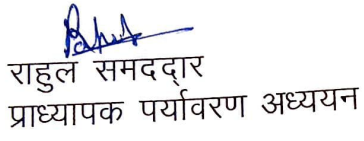 राहुल समददा्र
प्राध्यापक पर्यावरण अध्ययन